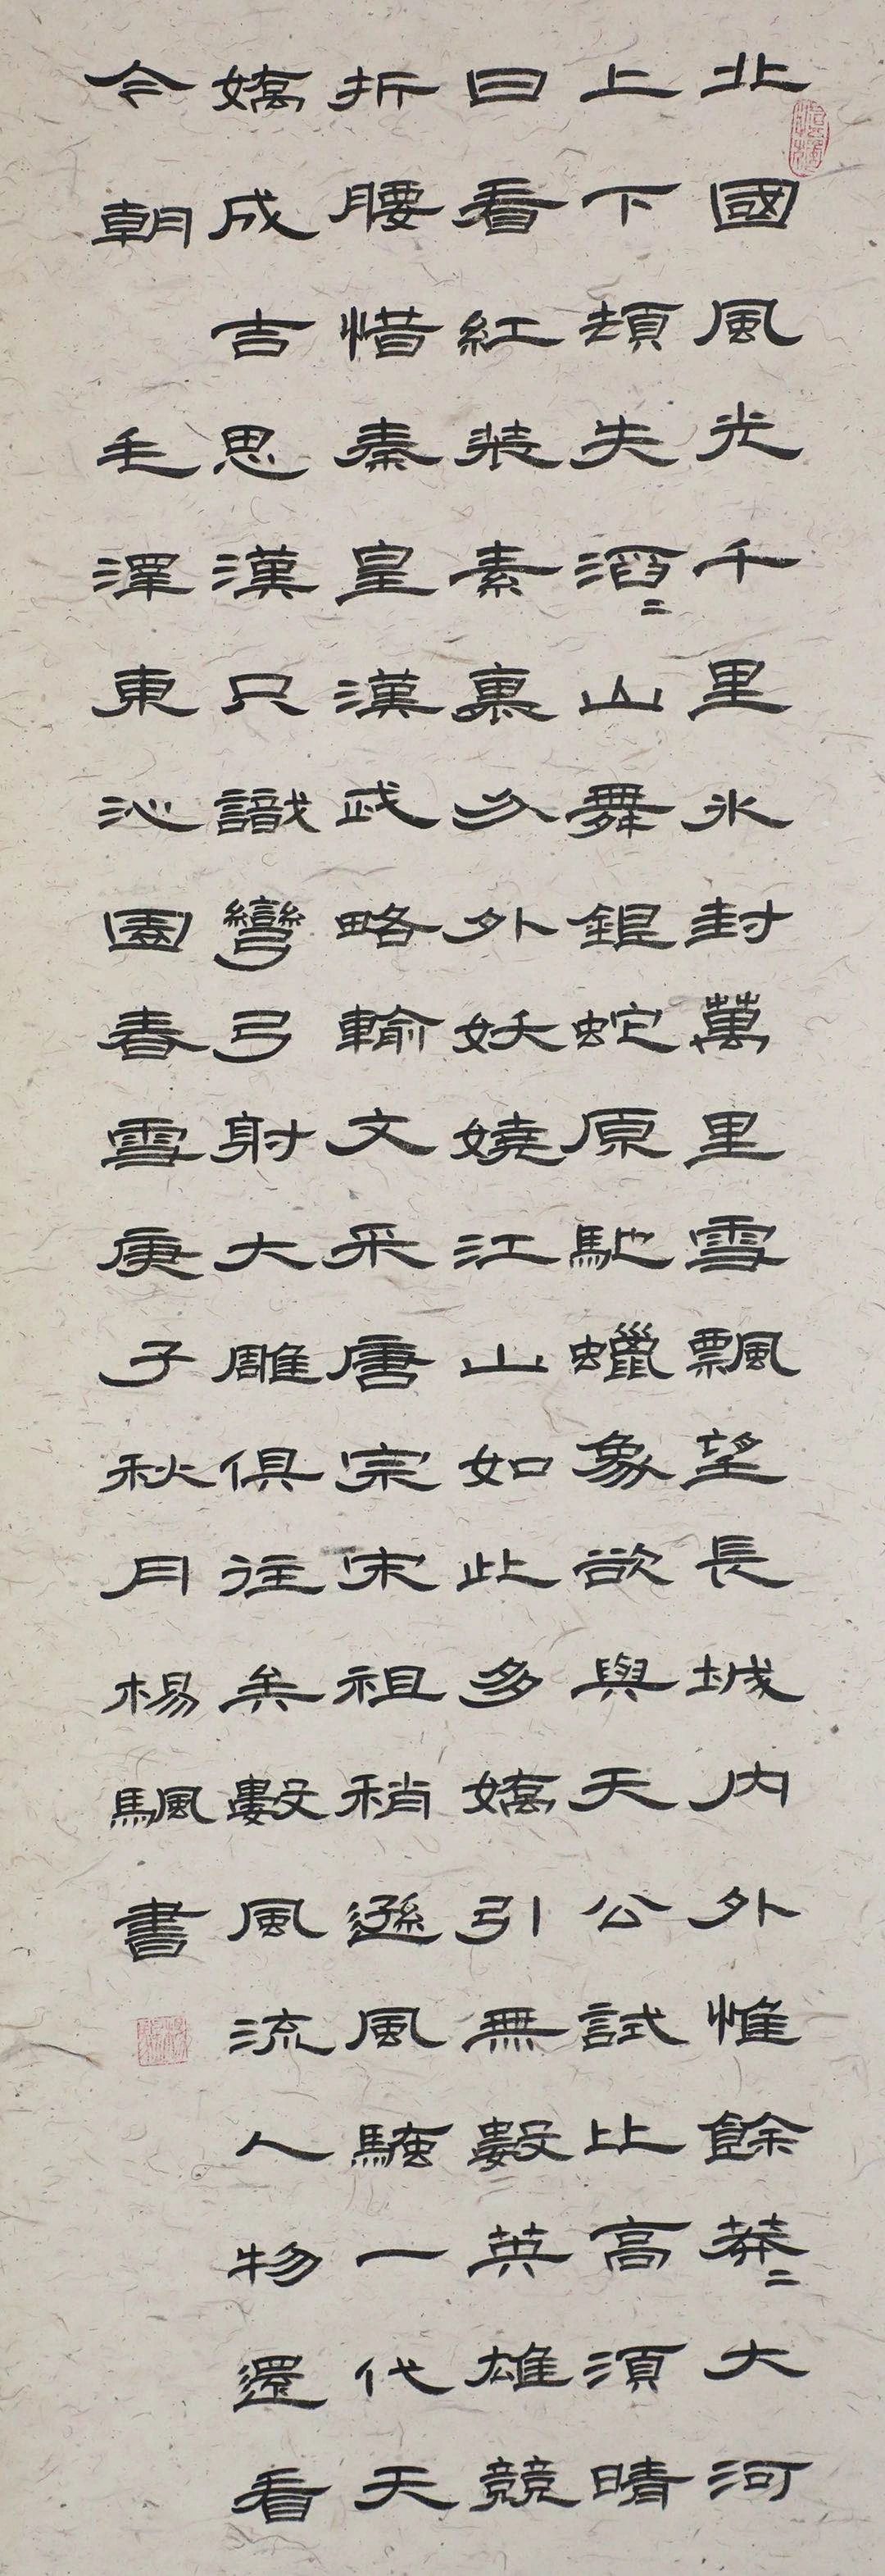 北國風光千里氷封萬里雪飄望長城內外惟餘莽〻大河
上下頓失滔〻山舞銀蛇原馳蠟象欲與天公試比高須晴
日看紅裝素裹分外妖嬈江山如此多嬌引無數英雄競
折腰惜秦皇漢武略輸文采唐宗宋祖稍遜風騷一代天
嬌成吉思漢只識彎弓射大雕俱往矣數風流人物還看
今朝 毛澤東沁園春雪庚子秋月楊颿書